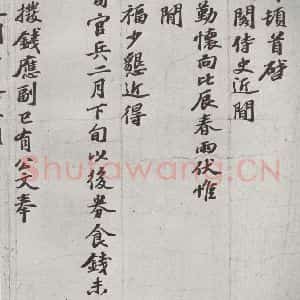 頓首啓
閣侍史近聞
勤懷向比辰春雨伏惟
聞
福少懇近得
官兵二月下旬以後券食錢未
撥錢應副已有公文奉
Shufawang.CN